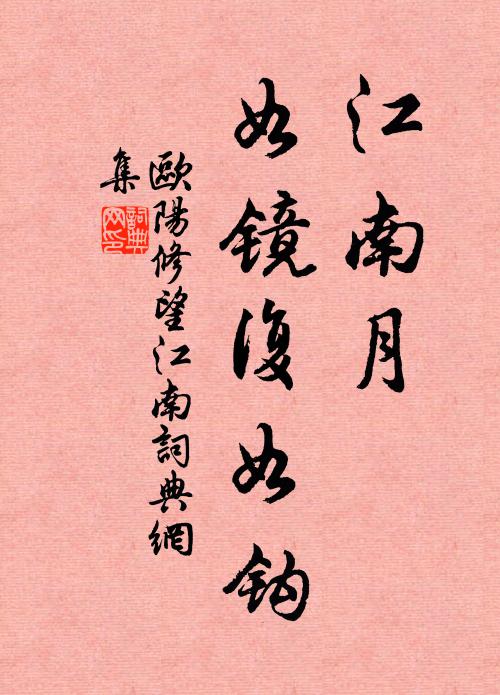 江南月
如镜復如鈎
歐陽修望江南詞典網
集
詞典網印